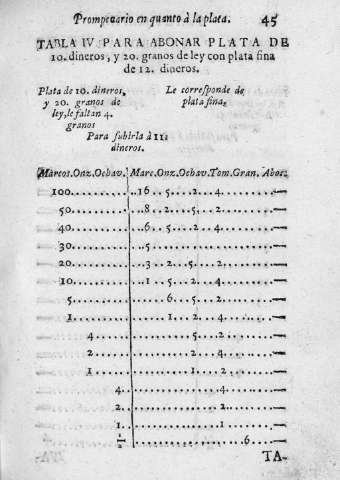 Prompenario en quanto à la plata. 45
TABLA IV. PARA ABONAR PLATA DE
10. dineros, y 20. granos de ley con plata fina
de 12. dineros.
Plata de 10. dineros,
y 20. granos de
ley, le faltan 4.
granos
Para subirla à 11:
dineros.
Le corresponde de
plata fina:
Marcos.Onz.Ochav. Marc.Onz.Ochav.Tom.Gran. Abos
100......16..5...2...4......
50......8...2...5...2......
40......6...5...2...4......
30......5......
20......3...2...5...2......
10......1...5...2...4......
5......6...5...2......
1......1...2...4......
4......5...2......
2......2...4......
1......1...2......
4......4......
2......2......
1......1......
½......6......
TA-